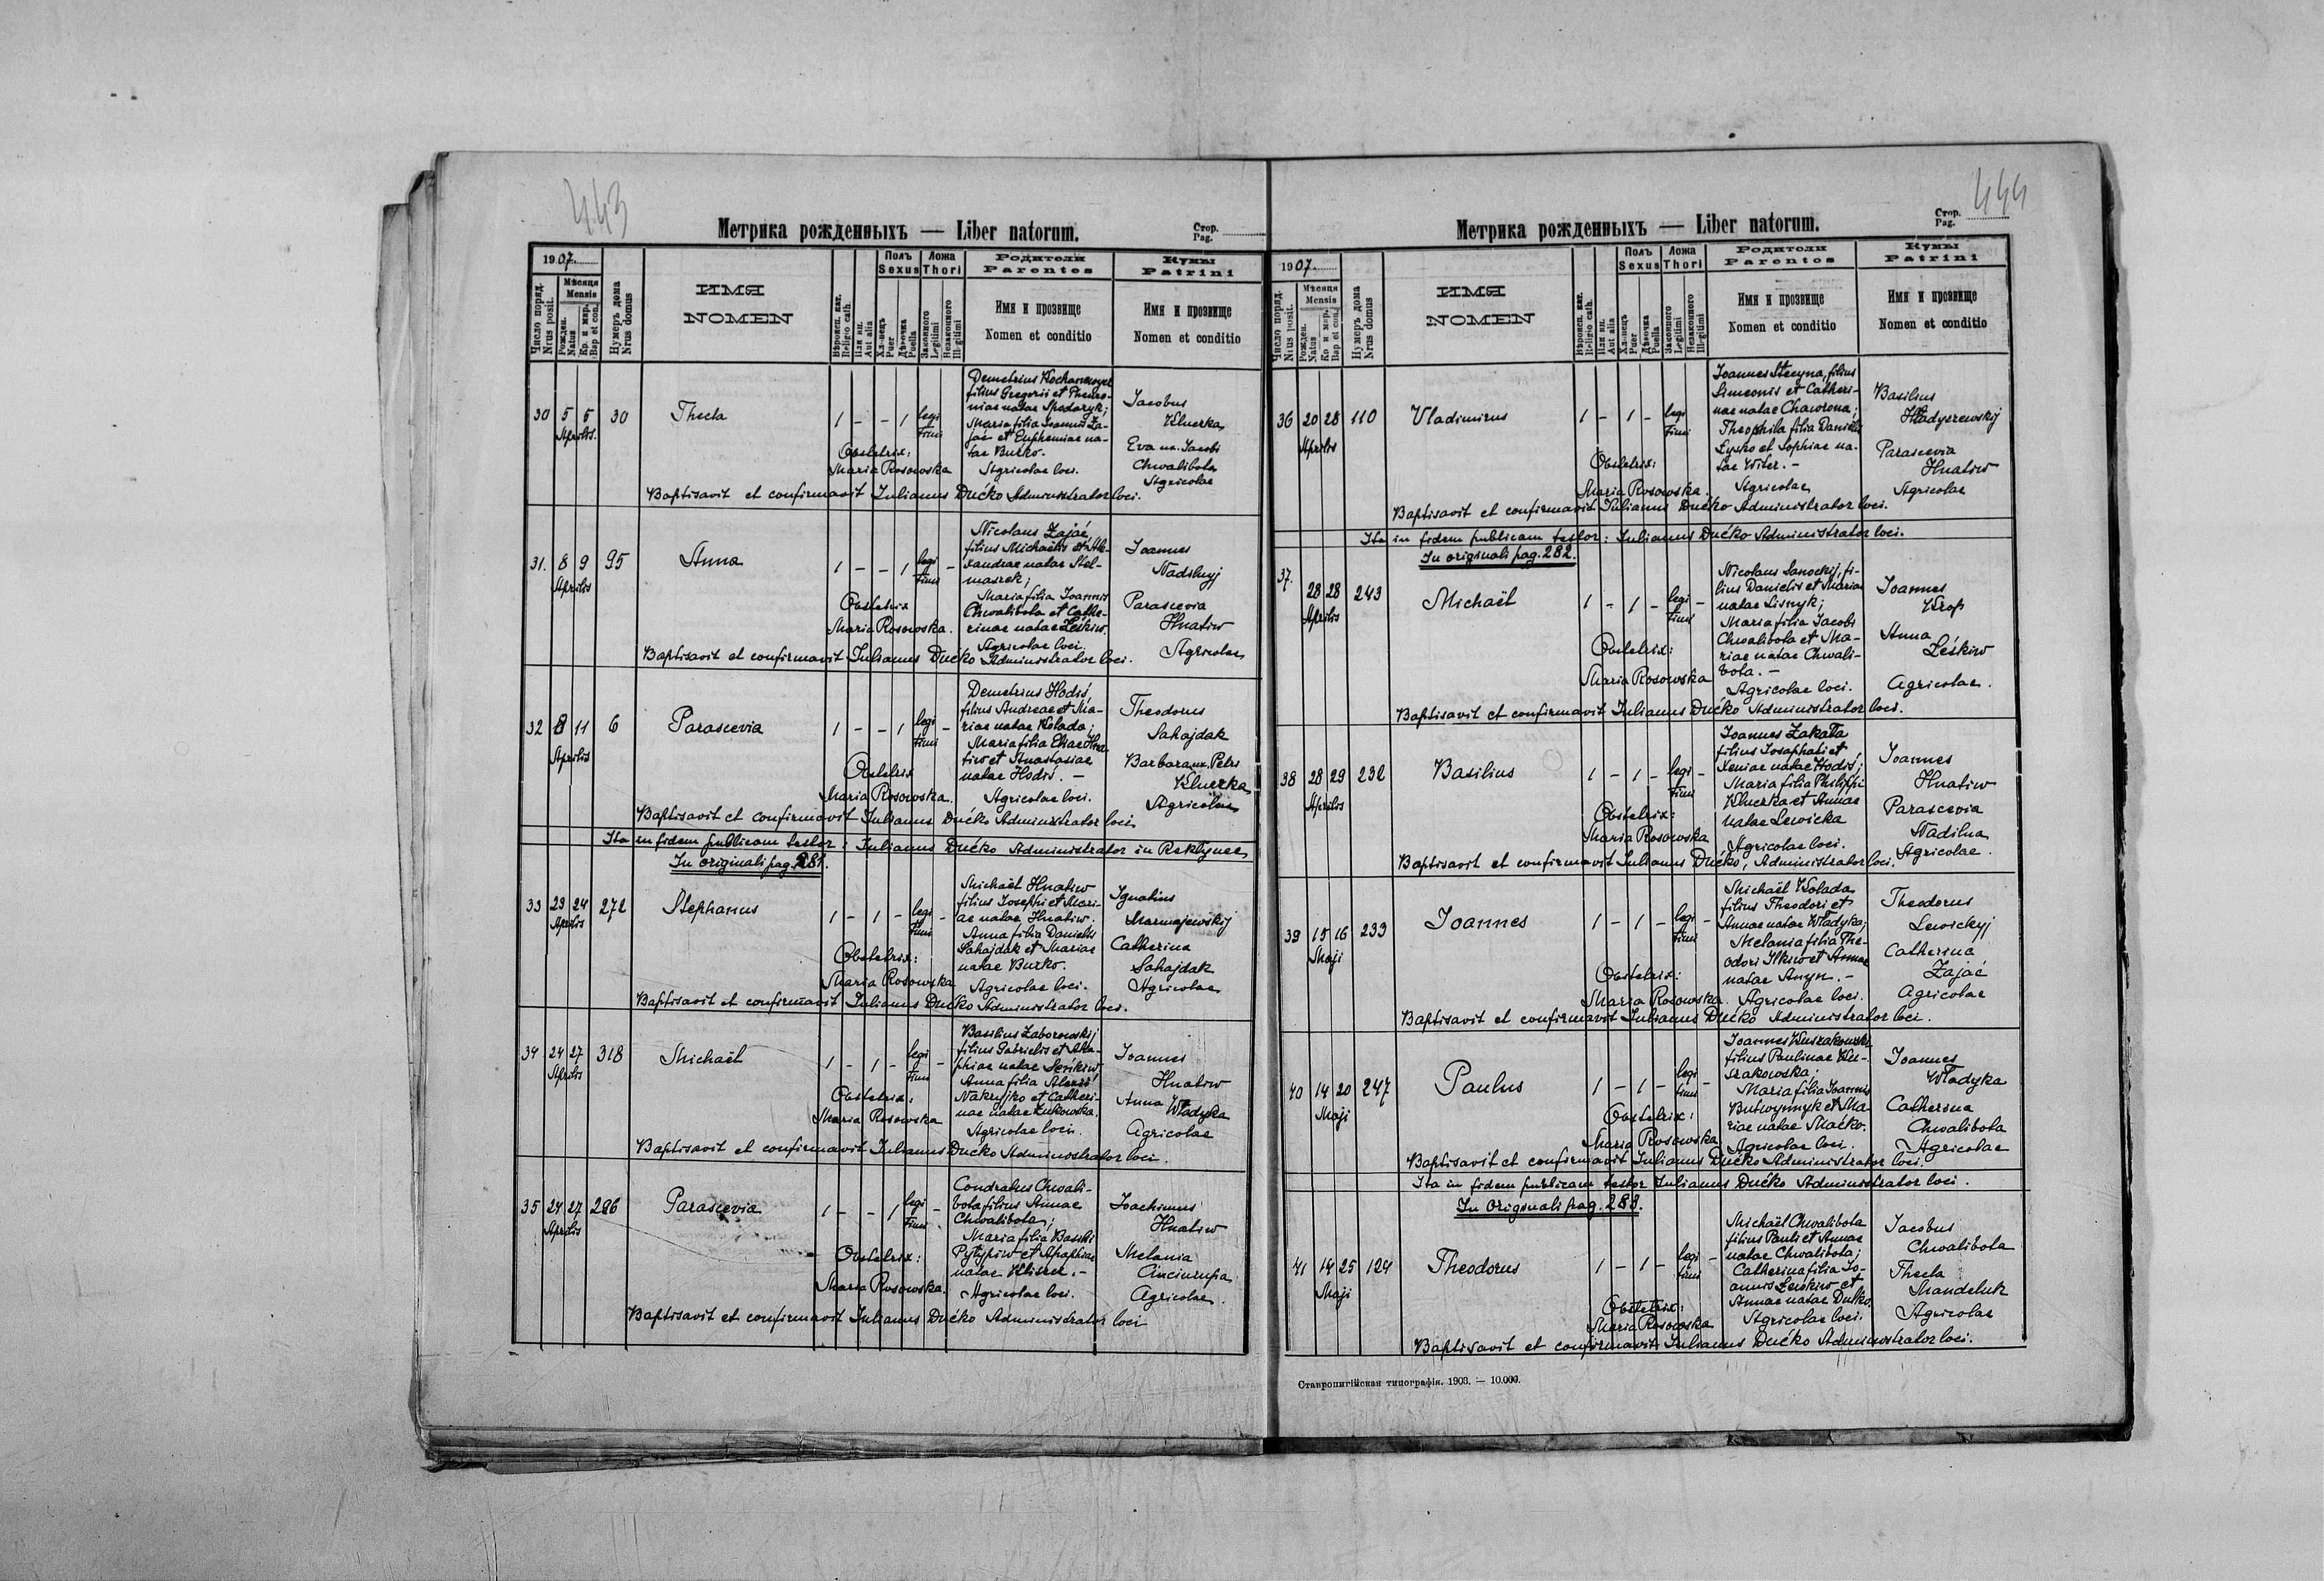 443
Метрика рожденныхъ — Liber natorum.
Стор.
Pag.
1907
Число поряд.
Nrus posit.
Мѣсяця
Mensis
Рожден.
Natus
Кр. и мвр.
Bap et con.
Нумеръ дома
Nrus domus
ИМЯ
NOMEN
Вѣроисп. кат.
Religio cath.
Или ин.
Aut alia
Полъ
Sexus
Хлопецъ
Puer
Дѣвочка
Puella
Ложа
Thori
Законного
Legitimi
Незаконного
Illegitimi
Родители
Parentes
Имя и прозвище
Nomen et conditio
Кумы
Patrini
Имя и прозвище
Nomen et conditio
30 5 5 Aprilis. 30 Thecla 1 - - 1 legitimi
Demetrius Kochanowycz
filius Gregorii et Phewro-
niae natae Spodaryk;
Maria filia Joannis Za-
jać et Euphemiae na-
tae Burko.
Agricolae loci.
Jacobus
Kluczka
Eva ux. Jacobi
Chwalibota
Agricolae
Obstetrix:
Maria Rosowska
Baptisavit et confirmavit Julianus Dućko Administrator loci.
31. 8 9 Aprilis 95 Anna 1 - - 1 legitimi -
Nicolaus Zajać,
filius Michaëlis et Ale-
xandrae natae Stel-
maszek;
Maria filia Joannis
Chwalibota et Cathe-
rinae natae Leśkiw.
Agricolae loci.
Joannes
Nadilnyj
Parascevia
Hnatiw
Agricolae
Obstetrix
Maria Rosowska.
Baptisavit et confirmavit Julianus Dućko Administrator loci.
32 8 11 Aprilis 6 Parascevia 1 - - 1 legitimi
Demetrius Hodiś,
filius Andreae et Ma-
riae natae Kolada;
Maria filia Eliae Hna-
tiw et Anastasiae
natae Hodiś. -
Agricolae loci.
Theodorus
Sahajdak
Barbara ux. Petri
Kluczka
Agricolae
Obstetrix
Maria Rosowska.
Baptisavit et confirmavit Julianus Dućko Administrator loci.
Ita in fidem publicam testor: Julianus Dućko Administrator in Reklynec
In originali pag. 281.
33 23 24 Aprilis 272 Stephanus 1 - 1 - legitimi -
Michaël Hnatiw
filius Josephi et Mari-
ae natae Hnatiw.
Anna filia Danielis
Sahajdak et Mariae
natae Burko.
Agricolae loci.
Ignatius
Marmajewskij
Catherina
Sahajdak
Agricolae
Obstetrix:
Maria Rosowska
Baptisavit et confirmavit Julianus Dućko Administrator loci.
34 24 27 Aprilis 318 Michaël 1 - 1 - legitimi -
Basilius Zaborowskij
filius Gabrielis et Aga-
phiae natae Leśkiw
Anna filia Alexii
Nakryjko et Catheri-
nae natae Żukowska.
Agricolae loci.
Joannes
Hnatiw
Anna
Władyka
Agricolae
Obstetrix:
Maria Rosowska
Baptisavit et confirmavit Julianus Dućko Administrator loci.
35 24 27 Aprilis 286 Parascevia 1 - - 1 legitimi -
Condratus Chwali-
bota filius Annae
Chwalibota;
Maria filia Basilii
Pytypiw et Agaphiae
natae Kliszcz. -
Agricolae loci.
Joachimus
Hnatiw
Melania
Cinciurupa
Agricolae.
Obstetrix:
Maria Rosowska.
Baptisavit et confirmavit Julianus Dućko Administrator loci
444
Метрика рожденныхъ — Liber natorum.
Стор.
Pag.
1907
Число поряд.
Nrus posit.
Мѣсяця
Mensis
Рожден.
Natus
Кр и мвр.
Bap et con.
Нумеръ дома
Nrus domus
ИМЯ
NOMEN
Вѣроисп. кат.
Religio cath.
Или ин.
Aut alia
Полъ
Sexus
Хлопецъ
Puer
Дѣвочка
Puella
Ложа
Thori
Законного
Legitimi
Незаконного
Illegitimi
Родители
Parentes
Имя и прозвище
Nomen et conditio
Кумы
Patrini
Имя и прозвище
Nomen et conditio
36 20 28 Aprilis 110 Vladimirus 1 - 1 - legitimi
Joannes Stecyna, filius
Simeonis et Catheri-
nae natae Chawrona;
Theophila filia Danielis
Łysko et Sophiae na-
tae Witer. -
Agricolae
Basilius
Hładyszewskij
Parascevia
Hnatiw
Agricolae
Obstetrix:
Maria Rosowska.
Baptisavit et confirmavit Julianus Dućko Administrator loci.
Ita in fidem publicam testor: Julianus Dućko Administrator loci.
In originali pag. 282.
37. 28 28 Aprilis 243 Michaël 1 - 1 - legitimi -
Nicolaus Sanockij, fi-
lius Danielis et Mariae
natae Lisnyk;
Maria filia Jacobi
Chwalibota et Ma-
riae natae Chwali-
bota. -
Agricolae loci.
Joannes
Krop
Anna
Leśkiw
Agricolae.
Obstetrix:
Maria Rosowska
Baptisavit et confirmavit Julianus Dućko Administrator loci.
38 28 29 Aprilis 232 Basilius 1 - 1 - legitimi -
Joannes Zakała
filius Josaphati et
Xeniae natae Hodiś;
Maria filia Philippi
Kluczka et Annae
natae Lewicka
Agricolae loci.
Joannes
Hnatiw
Parascevia
Nadilna
Agricolae.
Obstetrix:
Maria Rosowska
Baptisavit et confirmavit Julianus Dućko, Administrator loci.
39 15 16 Maji 233 Joannes 1 - 1 - legitimi -
Michaël Kolada
filius Theodori et
Annae natae Władyka;
Melania filia The-
odori Ilkiw et Annae
natae Anyn. -
Agricolae loci.
Theodorus
Lewickyj
Catherina
Zajać
Agricolae
Obstetrix:
Maria Rosowska.
Baptisavit et confirmavit Julianus Dućko Administrator loci.
40 14 20 Maji 247 Paulus 1 - 1 - legitimi -
filius Paulinae
Maria filia Joannis
et Ma-
riae natae Maćko.
Agricolae loci.
Joannes
Władyka
Catherina
Chwalibota
Agricolae
Obstetrix:
Maria Rosowska
Baptisavit et confirmavit Julianus Dućko Administrator loci.
Ita in fidem publicam testor Julianus Dućko Administrator loci.
In Originali pag. 283.
41 14 25 Maji 124 Theodorus 1 - 1 - legitimi -
Michaël Chwalibota
filius Pauli et Annae
natae Chwalibota;
Catherina filia Jo-
annis Leśkiw et
Annae natae Dućko.
Agricolae loci.
Jacobus
Chwalibota
Thecla
Mandeluk
Agricolae
Obstetrix:
Maria Rosowska
Baptisavit et confirmavit Julianus Dućko Administrator loci.
Ставропигійская типографія. 1903. — 10.000.